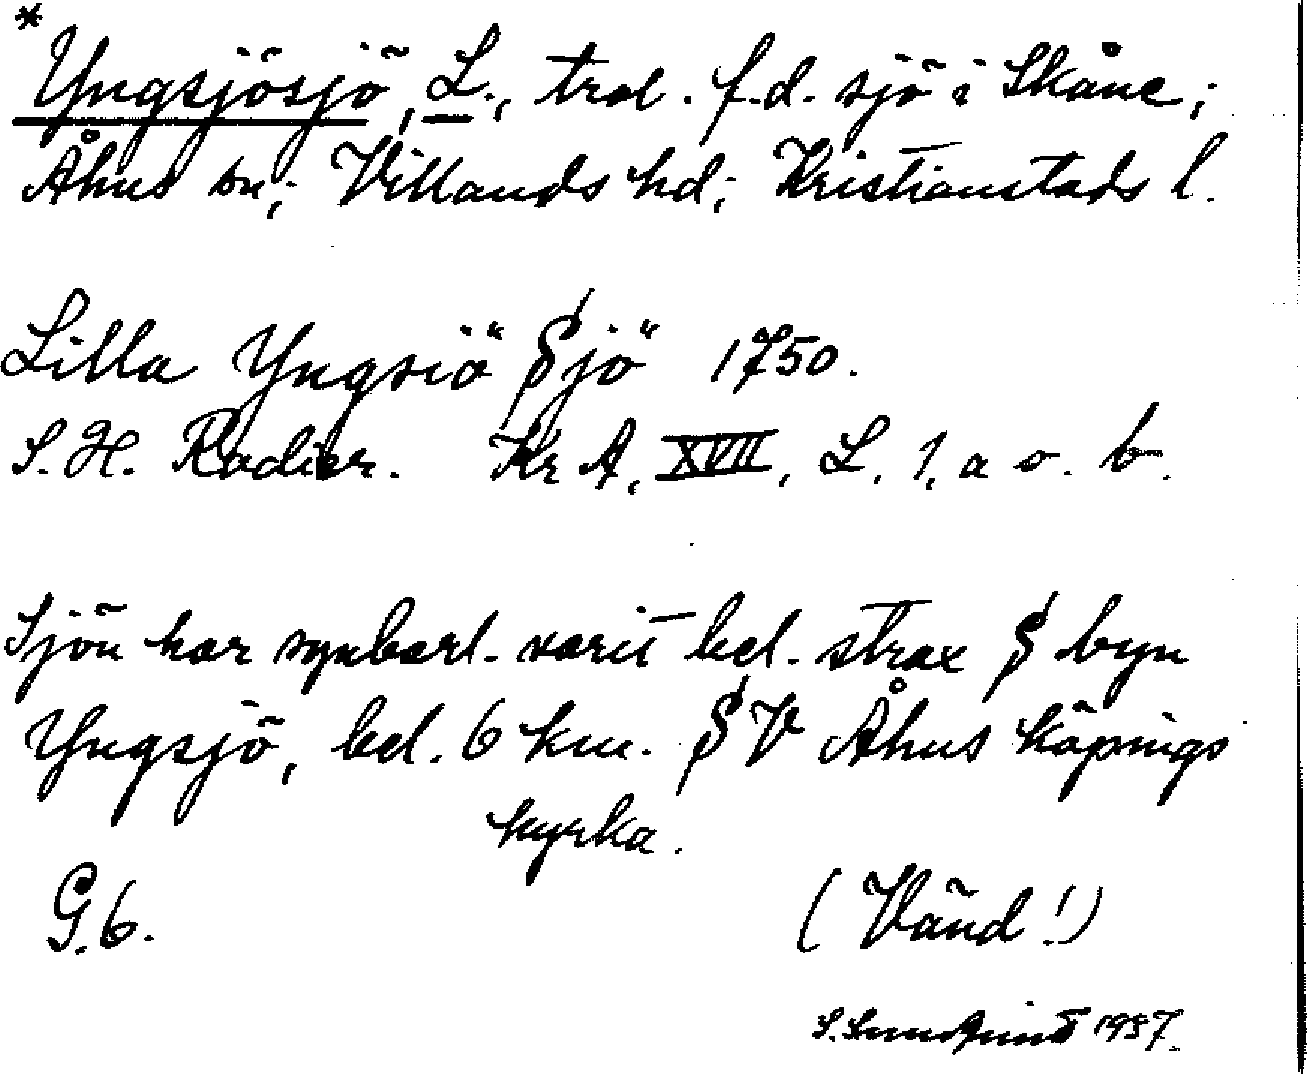 *
Yngsjösjö, L., trol. f.d. sjö i Skåne;
Åhus sn; Villands hd; Kristianstads l.
Lilla Yngsiö Sjö 1750.
S. H. Rodier. Kr A, XVII, L. 1, a o. b.
Sjön har synbarl. varit bel. strax S byn
Yngsjö, bel. 6 km. SV Åhus köpings
kyrka.
G. 6.
(Vänd!)
S. 1957.